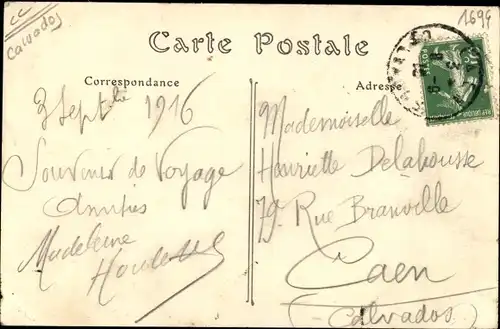 CC
Calvados
1699
Carte Postale
Correspondance
Adresse
3 Septbre 1916
Souvenir de Voyage
Amitiés
Madeleine
Mademoiselle
Henriette Delahousse
79 Rue Branville
Caen
(Calvados)